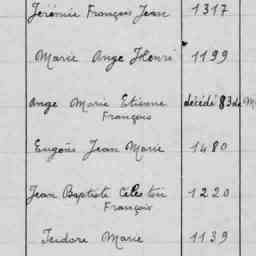 Jérémie François Jean 1317
Marie Ange Henri 1199
Ange Marie Etienne décédé 83 de M
François
Eugène Jean Marie 1480
Jean Baptiste Céles tin 1220
François
Isidore Marie 1139